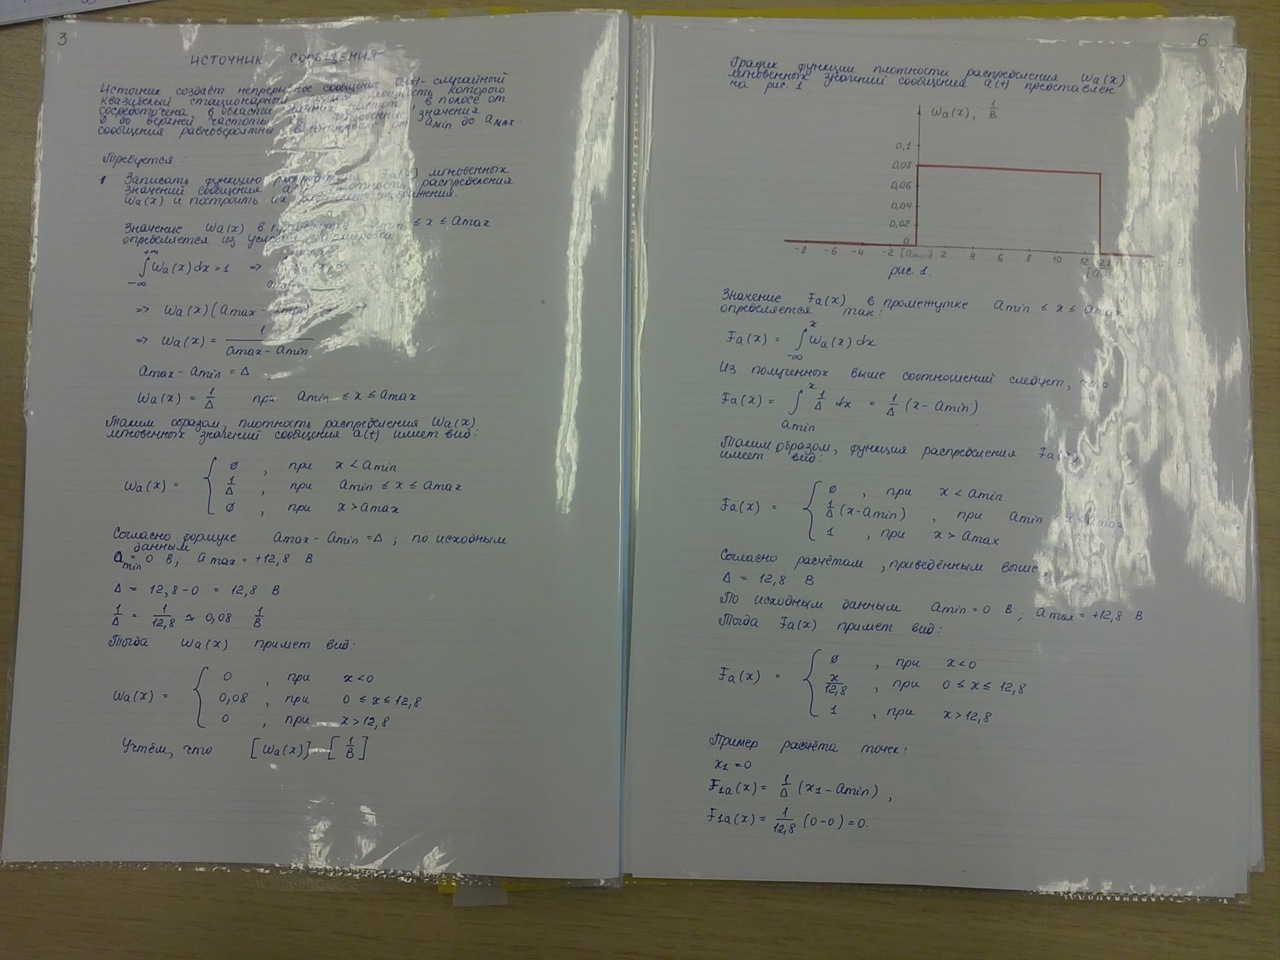 3
ИСТОЧНИК СООБЩЕНИЯ
Источник создаёт непрерывное сообщение a(t) - случайный
квазибелый стационарный мощность которого
сосредоточена в области частот, в полосе от
Ø до верхней частоты значения
сообщения равновероятны от amin до amax.
Требуется:
1 Записать функцию распределения Fa(x) мгновенных
значений сообщения a(t), плотность распределения
Wa(x) и построить их
Значение Wa(x) в ≤ x ≤ amax
определяется из условия
+∞
∫ Wa(x)dx = 1 =>
-∞
=> Wa(x)(amax -
=> Wa(x) = 1 / (amax - amin)
amax - amin = Δ
Wa(x) = 1/Δ при amin ≤ x ≤ amax
Таким образом, плотность распределения Wa(x)
мгновенных значений сообщения a(t) имеет вид:
Wa(x) = { Ø , при x < amin
1/Δ , при amin ≤ x ≤ amax
Ø , при x > amax
Согласно формуле amax - amin = Δ ; по исходным
данным
amin = 0 В; amax = +12,8 В
Δ = 12,8 - 0 = 12,8 В
1/Δ = 1/12,8 ≃ 0,08 1/В
Тогда Wa(x) примет вид:
Wa(x) = { 0 , при x < 0
0,08 , при 0 ≤ x ≤ 12,8
0 , при x > 12,8
Учтём, что [Wa(x)] = [1/В]
6
График функции плотности распределения Wa(x)
мгновенных значений сообщения a(t) представлен
на рис. 1
Wa(x), 1/В
0,1
0,08
0,06
0,04
0,02
0
-8 -6 -4 -2 [amin] 2 4 6 8 10 12
рис. 1.
Значение Fa(x) в промежутке amin ≤ x ≤ amax
определяется так:
x
Fa(x) = ∫ Wa(x) dx
-∞
Из полученных выше соотношений следует, что
x
Fa(x) = ∫ 1/Δ dx = 1/Δ (x - amin)
amin
Таким образом, функция распределения Fa(x)
имеет вид:
Fa(x) = { Ø , при x < amin
1/Δ (x - amin) , при amin ≤ x ≤ amax
1 , при x > amax
Согласно расчётам, приведённым выше,
Δ = 12,8 В
По исходным данным amin = 0 В; amax = +12,8 В
Тогда Fa(x) примет вид:
Fa(x) = { Ø , при x < 0
x/12,8 , при 0 ≤ x ≤ 12,8
1 , при x > 12,8
Пример расчёта точек:
x1 = 0
F1a(x) = 1/Δ (x1 - amin) ;
F1a(x) = 1/12,8 (0 - 0) = 0.